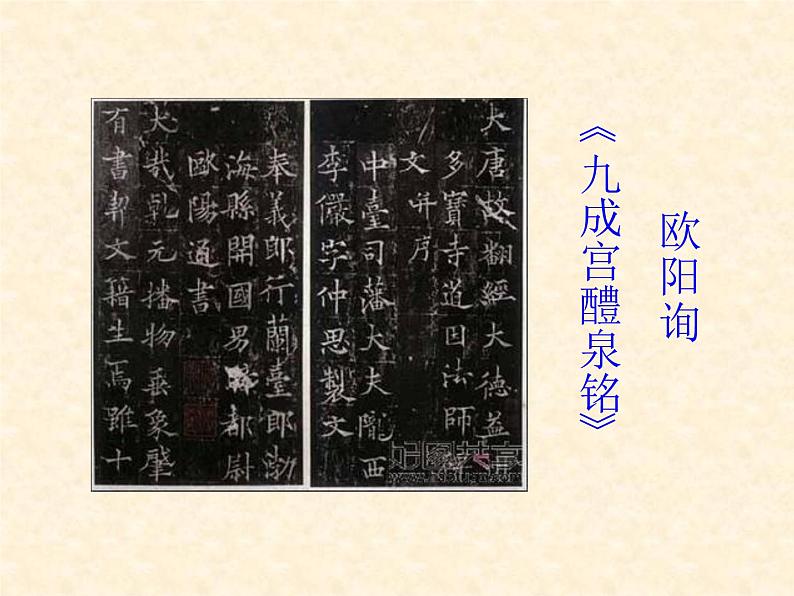 欧阳询
《九成宫醴泉铭》
大唐故翻經大德益
多寶寺道因法師
文并序
中臺司藩大夫隴西
李儼字仲思製文
奉義郎行蘭臺郎渤
海縣開國男 都尉
歐陽通書
大哉乾元播物垂象肇
有書契文籍生焉雖十
好图共享